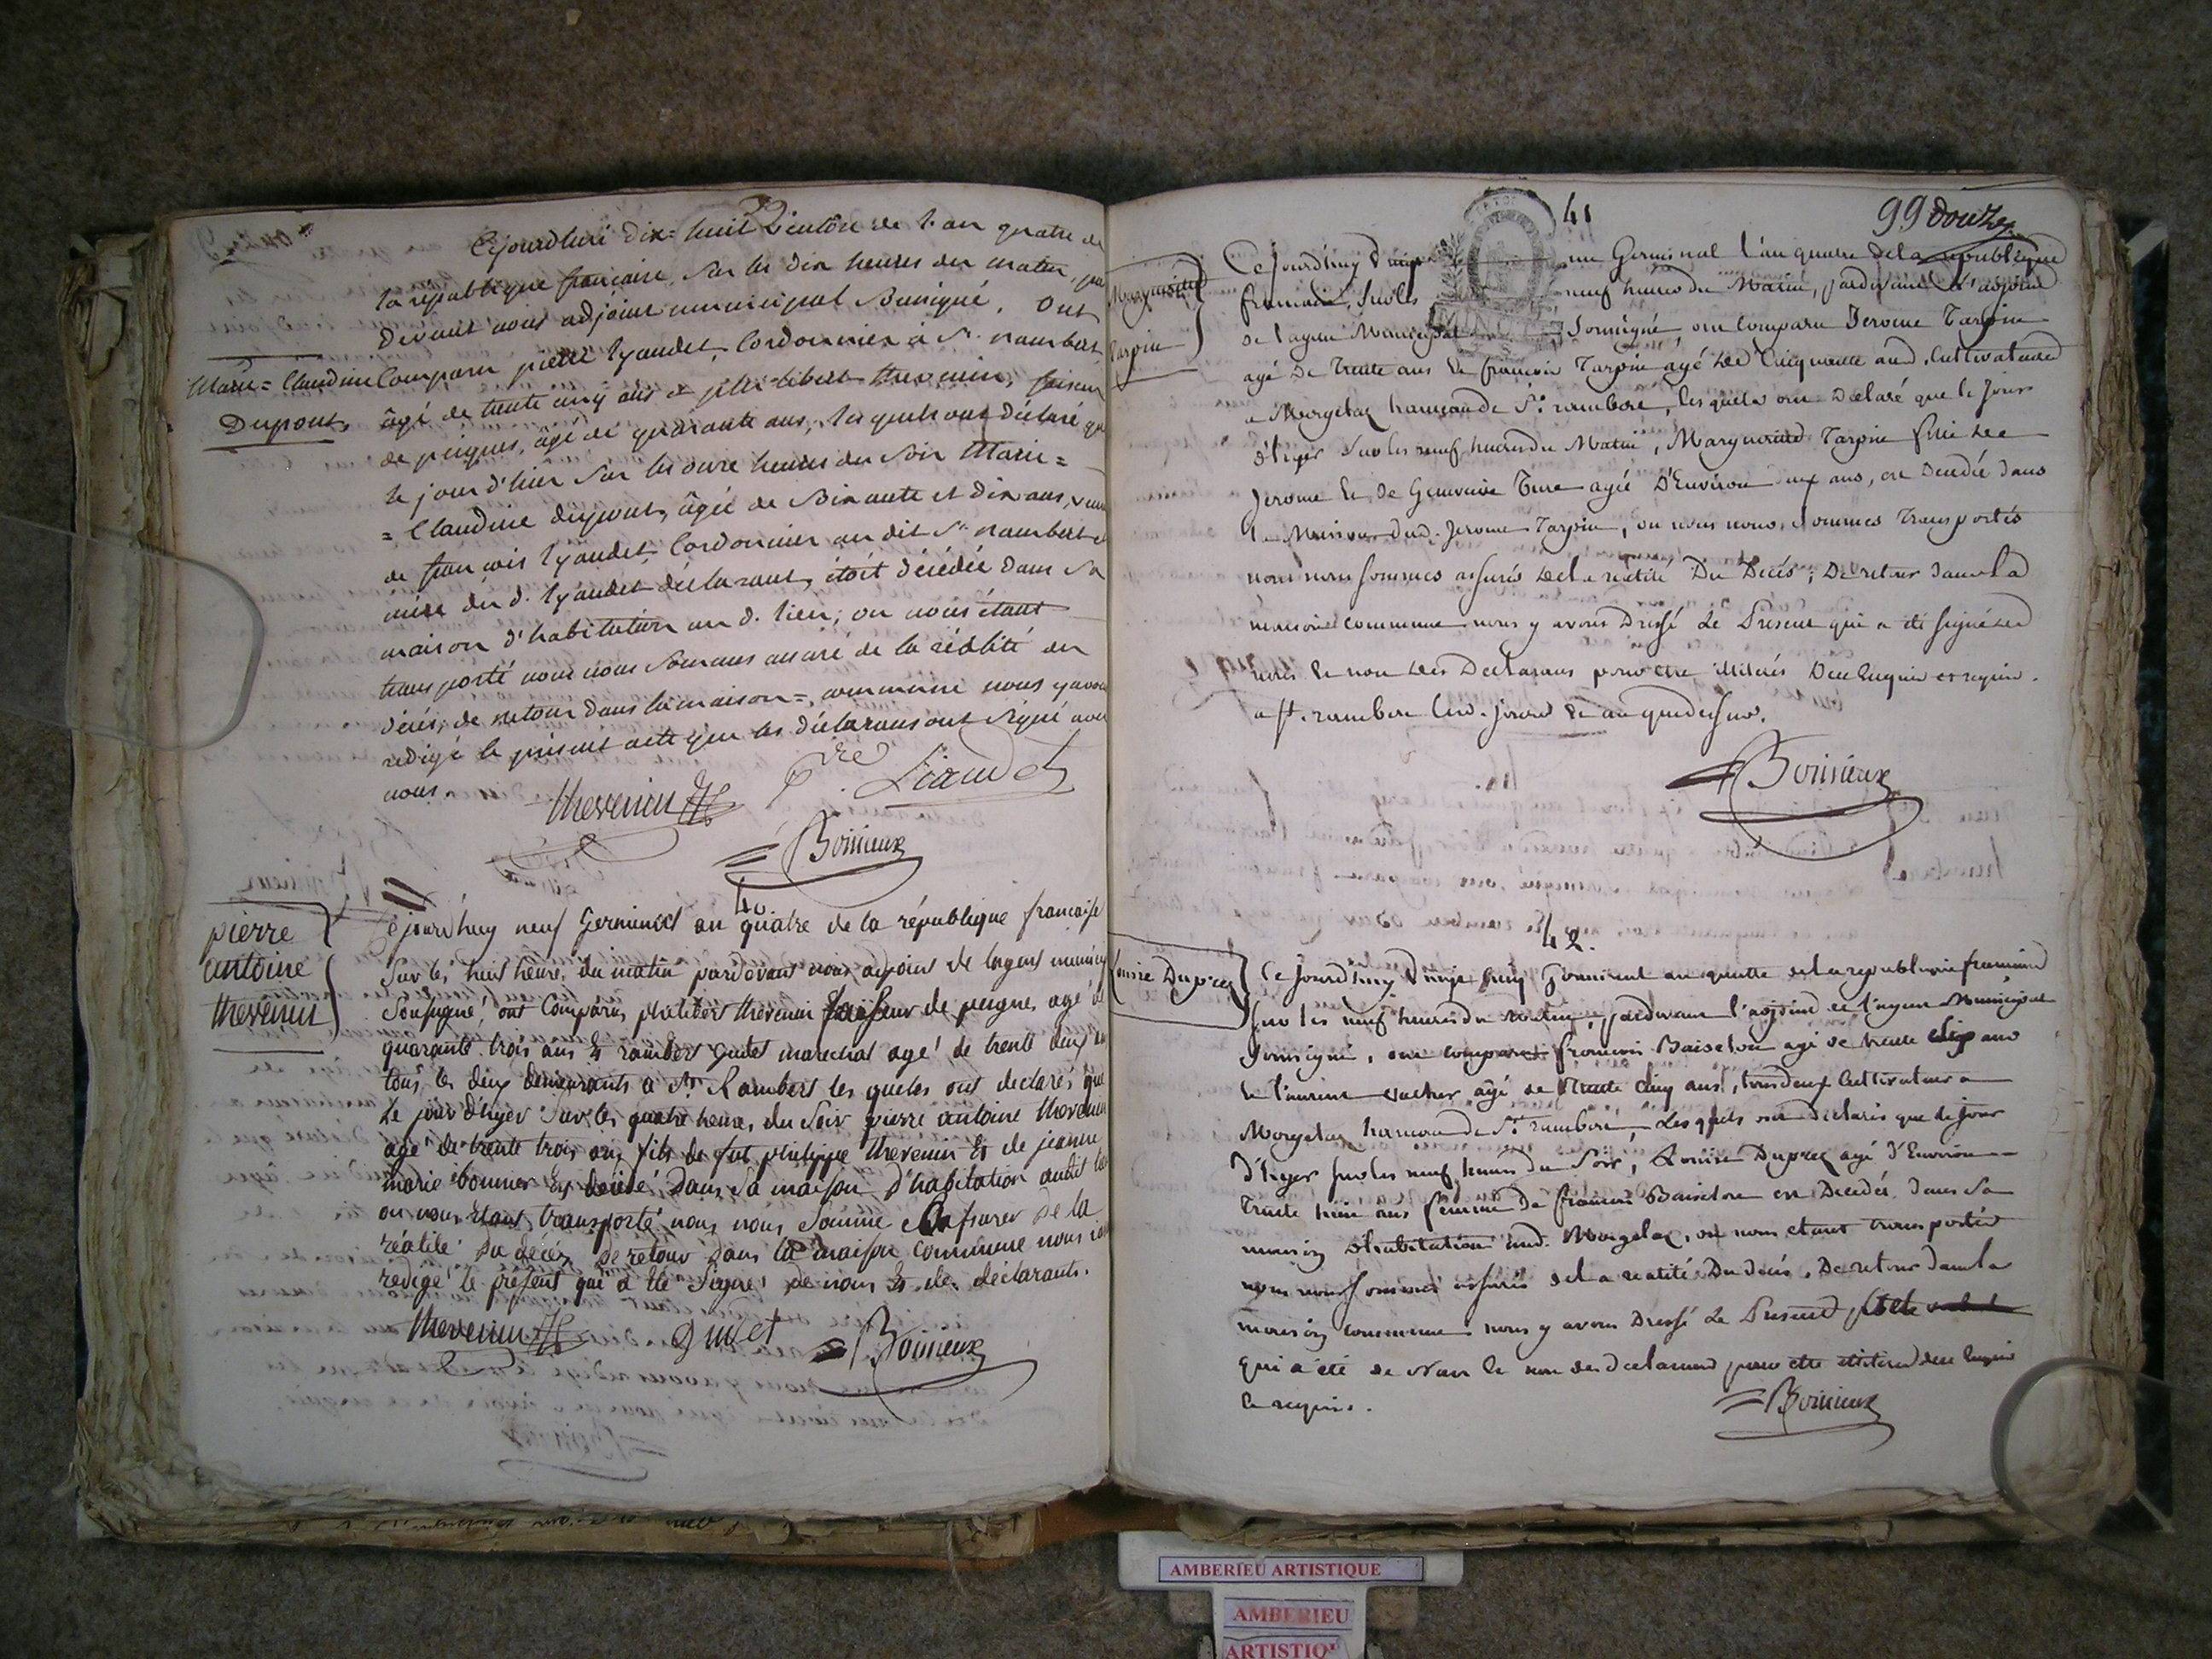 39
Cejourdhui dix-huit Ventôse de l'an quatre de
la république francaise, sur les dix heures du matin, par
devant nous adjoint municipal Sousigné, Ont
Marie=Claudine
Dupont
Comparu pierre lyaudet, Cordonnier à St. rambert
âgé de trente cinq ans et philibert thevenin, faiseur
de peignes, âgé de quarante ans, lesquels ont déclaré que
le jour d'hier sur les onze heures du soir Marie=
=Claudine dupont, âgée de Soixante et dix ans, veuve
de françois lyaudet, Cordonnier au dit St. rambert et
mère du d. lyaudet déclarant, étoit décédée dans sa
maison d'habitation au d. lieu; ou nous étant
transporté nous nous Sommes assuré de la réalité du
décés; de retour dans la maison=commune nous y avons
redigé le présent acte que les déclarans ont Signé avec
nous.
thevenin
Pre. Liaudet
Boinieux
40.
pierre
antoine
thevenin
Cejourdhuy neuf Germinal an quatre de la république francaise
Sur les huit heures du matin pardevant nous adjoint de lagent municipal
Sousigné, ont Comparus philibert thevenin faiseur de peigne, agé de
quarante trois ans Et rambert gudet marechal agé de trente deux ans
tous les deux demeurants a St. Rambert les quels ont declarés que
Le jour d'hyer Sur les quatre heures du Soir pierre antoine thevenin
agé de trente trois ans fils de fut philippe thevenin Et de jeanne
marie bonnier Est décédé Dans Sa maison d'habitation audit lieu
ou nous Etant transporté nous nous Somme assurer de la
réalité du décés, De retour dans la maison Commune nous avons
redigé le présent qui a été Signé de nous Et des déclarants.
thevenin
gudet
Boinieux
41
99 douze
Marguerite
Tarpin
Ce Jourd'huy Vingt un Germinal l'an quatre de la republique
francaise, Sur les neuf heures du Matin, pardevant l'adjoint
de l'agent Municipal Sousigné ont Comparu Jerome Tarpin
agé De Trente ans Et francois Tarpin agé de Cinquante ans, Cultivateurs
a Morgelas hameau de St. rambert, les quels ont Déclaré que le Jour
d'hyer Sur les neuf heures du Matin, Marguerite Tarpin fille de
Jerome Et de Genevieve Ture agée D'Environ deux ans, est Décedée dans
la Maison dud. Jerome Tarpin, ou nous nous Sommes Transportés
nous nous sommes assurés de la realité Du Décés; De retour dans la
maison commune nous y avons Dressé Le Présent qui a été Signé de
nous Et non des Declarans pour être illiterés De ce Enquis et requis.
a St. rambert les. jour Et an que dessus.
Boinieux
42.
Louise Duprez
Ce Jourd'huy Vingt huit Germinal an quatre de la republique francaise
Sur les neuf heures du matin, pardevant l'adjoint de l'agent Municipal
Sousigné, ont comparu francois Baiselon agé de trente ans
Et Laurent vacher agé de Trente Cinq ans, tous deux Cultivateurs a
Morgelas hameau de St. rambert, Les quels ont declarés que le jour
d'hyer Sur les neuf heures du Soir, Louise Duprez agé d'Environ
Trente huit ans femme De francois Baiselon est Decedés Dans Sa
maison d'habitation aud. Morgelas, ou nous etant transportés
nous nous sommes assurés de la realité Du décés, De retour dans la
maison commune nous y avons Dressé Le Present
qui a été de Nous Et non des declarans pour etre illiteré de ce Enquis
Et requis.
Boinieux
AMBERIEU ARTISTIQUE
AMBERIEU
ARTISTIQ